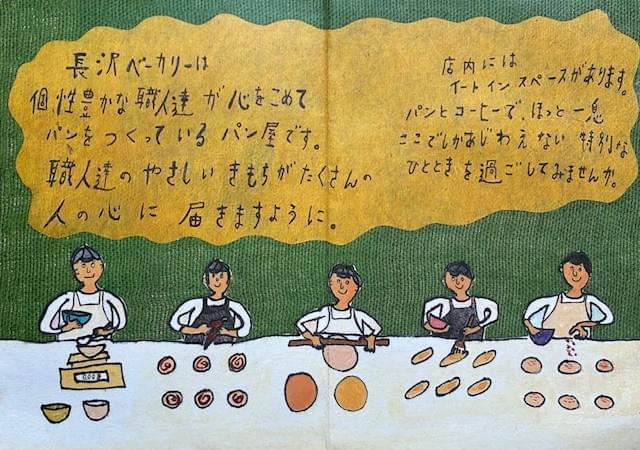 長沢ベーカリーは
個性豊かな職人達が心をこめて
パンをつくっているパン屋です。
職人達のやさしいきもちがたくさんの
人の心に届きますように。
店内には
イートインスペースがあります。
パンとコーヒーで、ほっと一息
ここでしかあじわえない特別な
ひとときを過ごしてみませんか。
000g